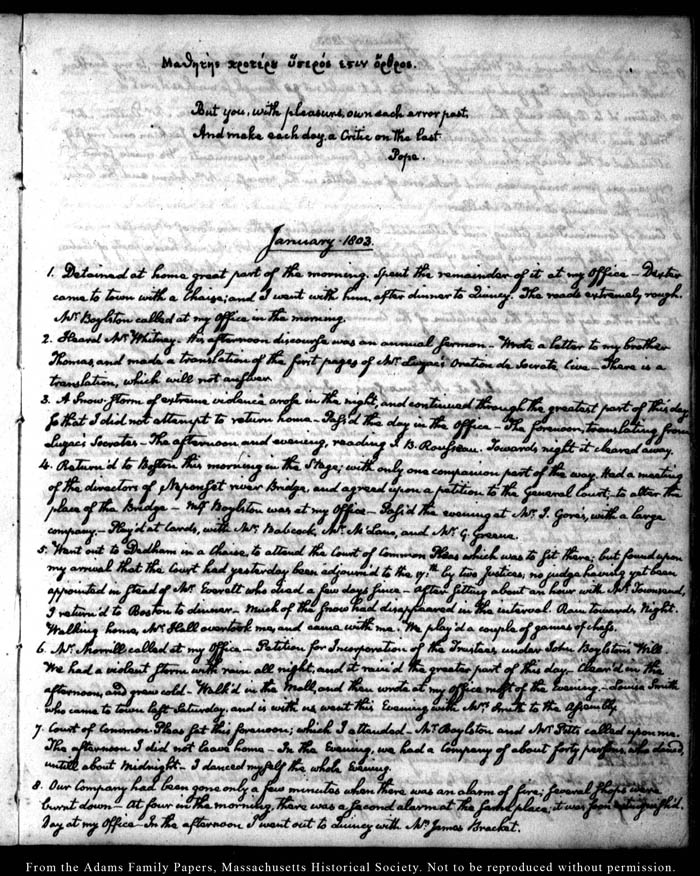 Μαθητὴς προτέρȣ ὕστερός ἐστιν ὄρθρος.
But you, with pleasure, own each error past,
And make each day, a Critic on the last
Pope.
January 1803.
1. Detained at home great part of the morning. Spent the remainder of it at my Office — Dexter
came to town with a Chaise; and I went with him, after dinner to Quincy. The roads extremely rough.
Mr. Boylston called at my Office in the morning.
2. Heard Mr. Whitney. His afternoon discourse was an annual sermon — Wrote a letter to my brother
Thomas, and made a translation of the first pages of Mr. Luzac's Oration de Socrate Cive — There is a
translation, which will not answer.
3. A Snow-storm of extreme violence arose in the night, and continued through the greatest part of this day
so that I did not attempt to return home — Pass'd the day in the Office — The forenoon, translating from
Luzac's Socrates — The afternoon and evening, reading J. B. Rousseau. Towards night it cleared away.
4. Return'd to Boston this morning in the Stage; with only one companion part of the way. Had a meeting
of the directors of Neponset river Bridge, and agreed upon a petition to the General Court, to alter the
place of the Bridge — Mr. Boylston was at my Office — Pass'd the evening at Mr. J. Gore's, with a large
company — Play'd at Cards, with Mrs. Babcock, Mr. McLane, and Mr. G. Greene.
5. Went out to Dedham in a Chaise, to attend the Court of Common Pleas which was to sit there; but found upon
my arrival that the Court had yesterday been adjourn'd to the 17th. by two Justices, no judge having yet been
appointed in stead of Mr. Everett who died a few days since — After sitting about an hour with Mr. Townsend,
I return'd to Boston to dinner — Much of the snow had disappeared in the interval. Rain towards Night.
Walking home, Mr. Hall overtook me, and came with me. We play'd a couple of games of chess.
6. Mr. Morrill called at my Office — Petition for Incorporation of the Trustees, under John Boylston's Will
We had a violent storm with rain all night, and it rain'd the greater part of this day — Clear'd in the
afternoon, and grew cold — Walk'd in the Mall, and then wrote at my office most of the Evening — Louisa Smith
who came to town last Saturday, and is with us went this Evening with Mrs. Smith to the Assembly.
7. Court of Common Pleas sat this forenoon; which I attended — Mr. Boylston and Mr. Pitts called upon me.
The afternoon I did not leave home — In the Evening, we had a Company of about forty persons, who danced,
untill about Midnight — I danced myself the whole Evening.
8. Our Company had been gone only a few minutes when there was an alarm of fire; several shops were
burnt down — At four in the morning, there was a second alarm at the same place; it was soon extinguish'd.
Day at my Office — In the afternoon I went out to Quincy with Mr. James Bracket.
From the Adams Family Papers, Massachusetts Historical Society. Not to be reproduced without permission.